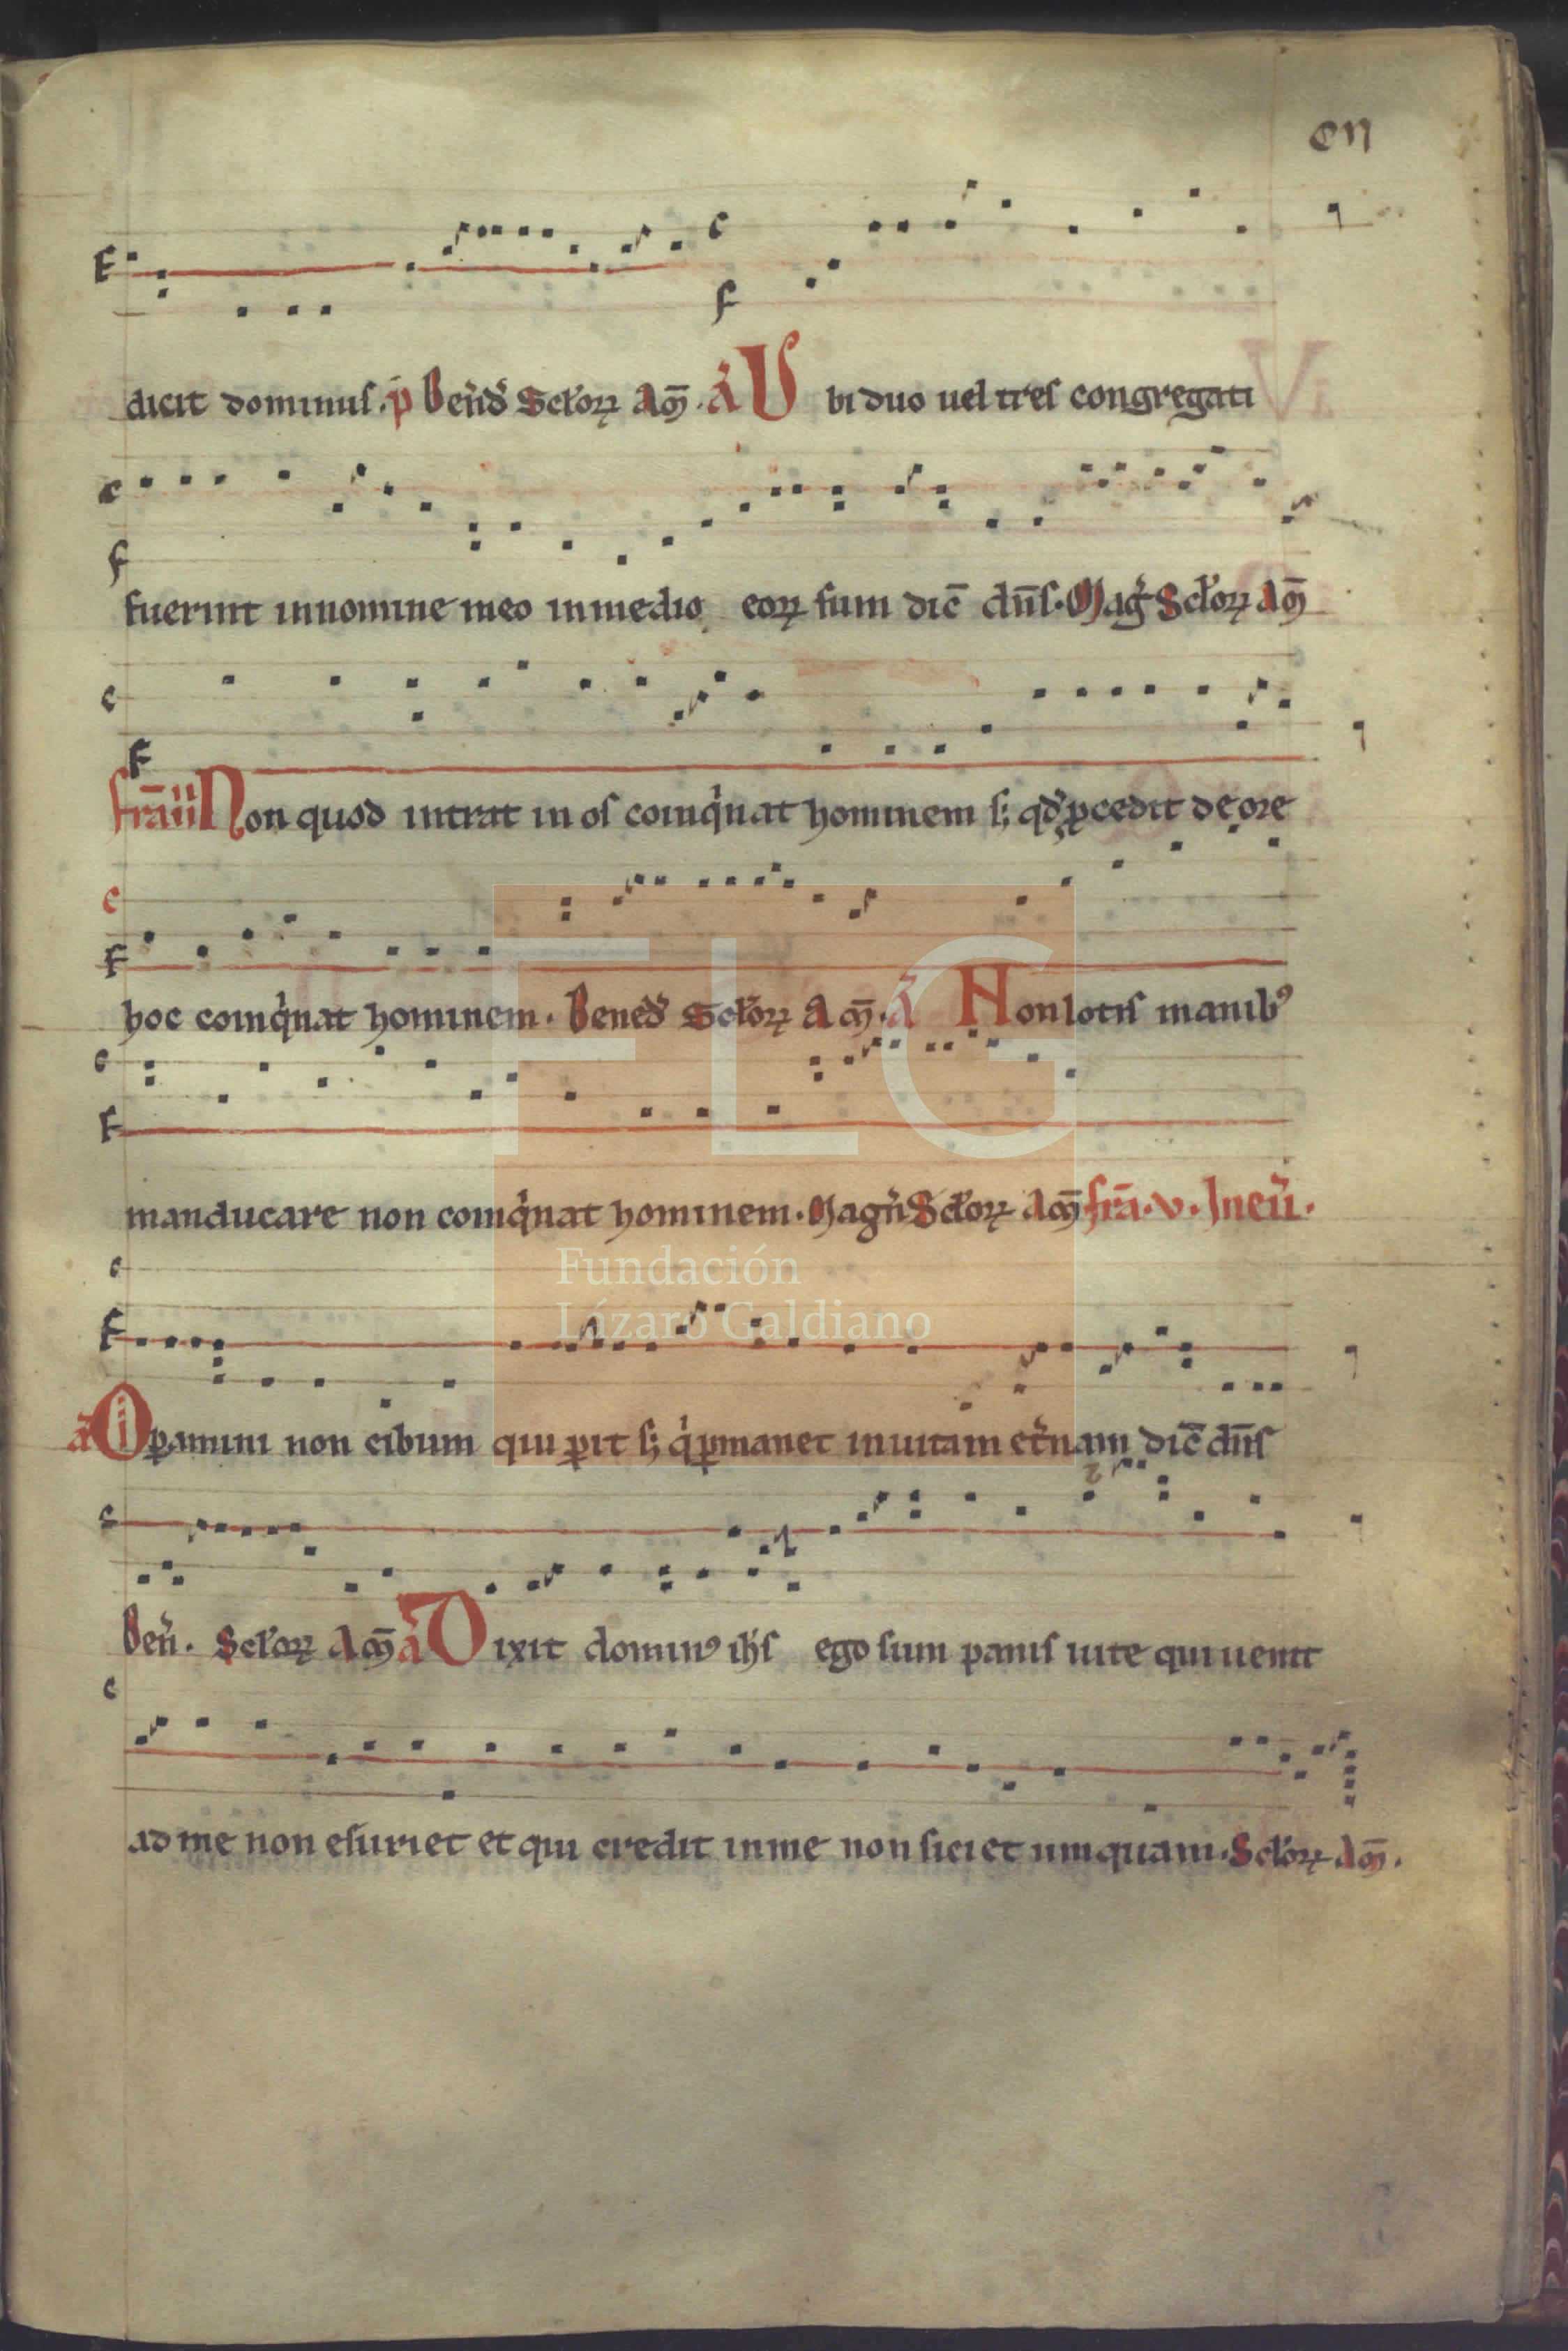 cıı
dicit dominus. p̄ Ben̄d̄ Sc̄loꝝ Am̄. ā Ubi duo uel tres congregati
fuerint in nomine meo in medio eoꝝ sum dic̄ dn̄s. Maḡ Sc̄loꝝ Am̄
fr̄a iii Non quod intrat in os coinqͥnat hominem s; qd̄ ꝓcedit de ore
hoc coinqͥnat hominem. Bened̄ Sc̄loꝝ Am̄. ā Non lotis manibꝰ
manducare non coinqͥnat hominem. Magn̄ Sc̄loꝝ Am̄ fr̄a. v. In eu̅.
ā Oꝑamini non cibum qui ꝑit s; qͥ ꝑmanet in uitam et̄nam dic̄ dn̄s
Ben̄. Sc̄loꝝ Am̄ ā Dixit dominꝰ ih̄s ego sum panis uite qui uenit
ad me non esuriet et qui credit in me non siciet umquam. Sc̄loꝝ Am̄.
Fundación
Lázaro Galdiano
FLG